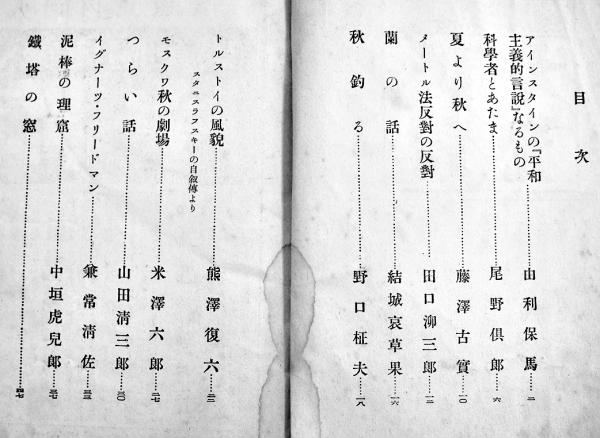 目次
アインスタインの『平和
主義的言說』なるもの……由利保馬……二
科學者とあたま……尾野倶郎……六
夏より秋へ……藤澤古實……一〇
メートル法反對の反對……田口泖三郎……一二
蘭の話……結城哀草果……一六
秋釣る……野口柾夫……一八
トルストイの風貌……熊澤復六……二二
スタニスラフスキーの自叙傳より
モスクワ秋の劇場……米澤六郎……二七
つらい話……山田清三郎……三〇
イグナーツ・フリードマン……兼常清佐……三三
泥棒の理窟……中垣虎兒郎……三七
鐵塔の窓……四七